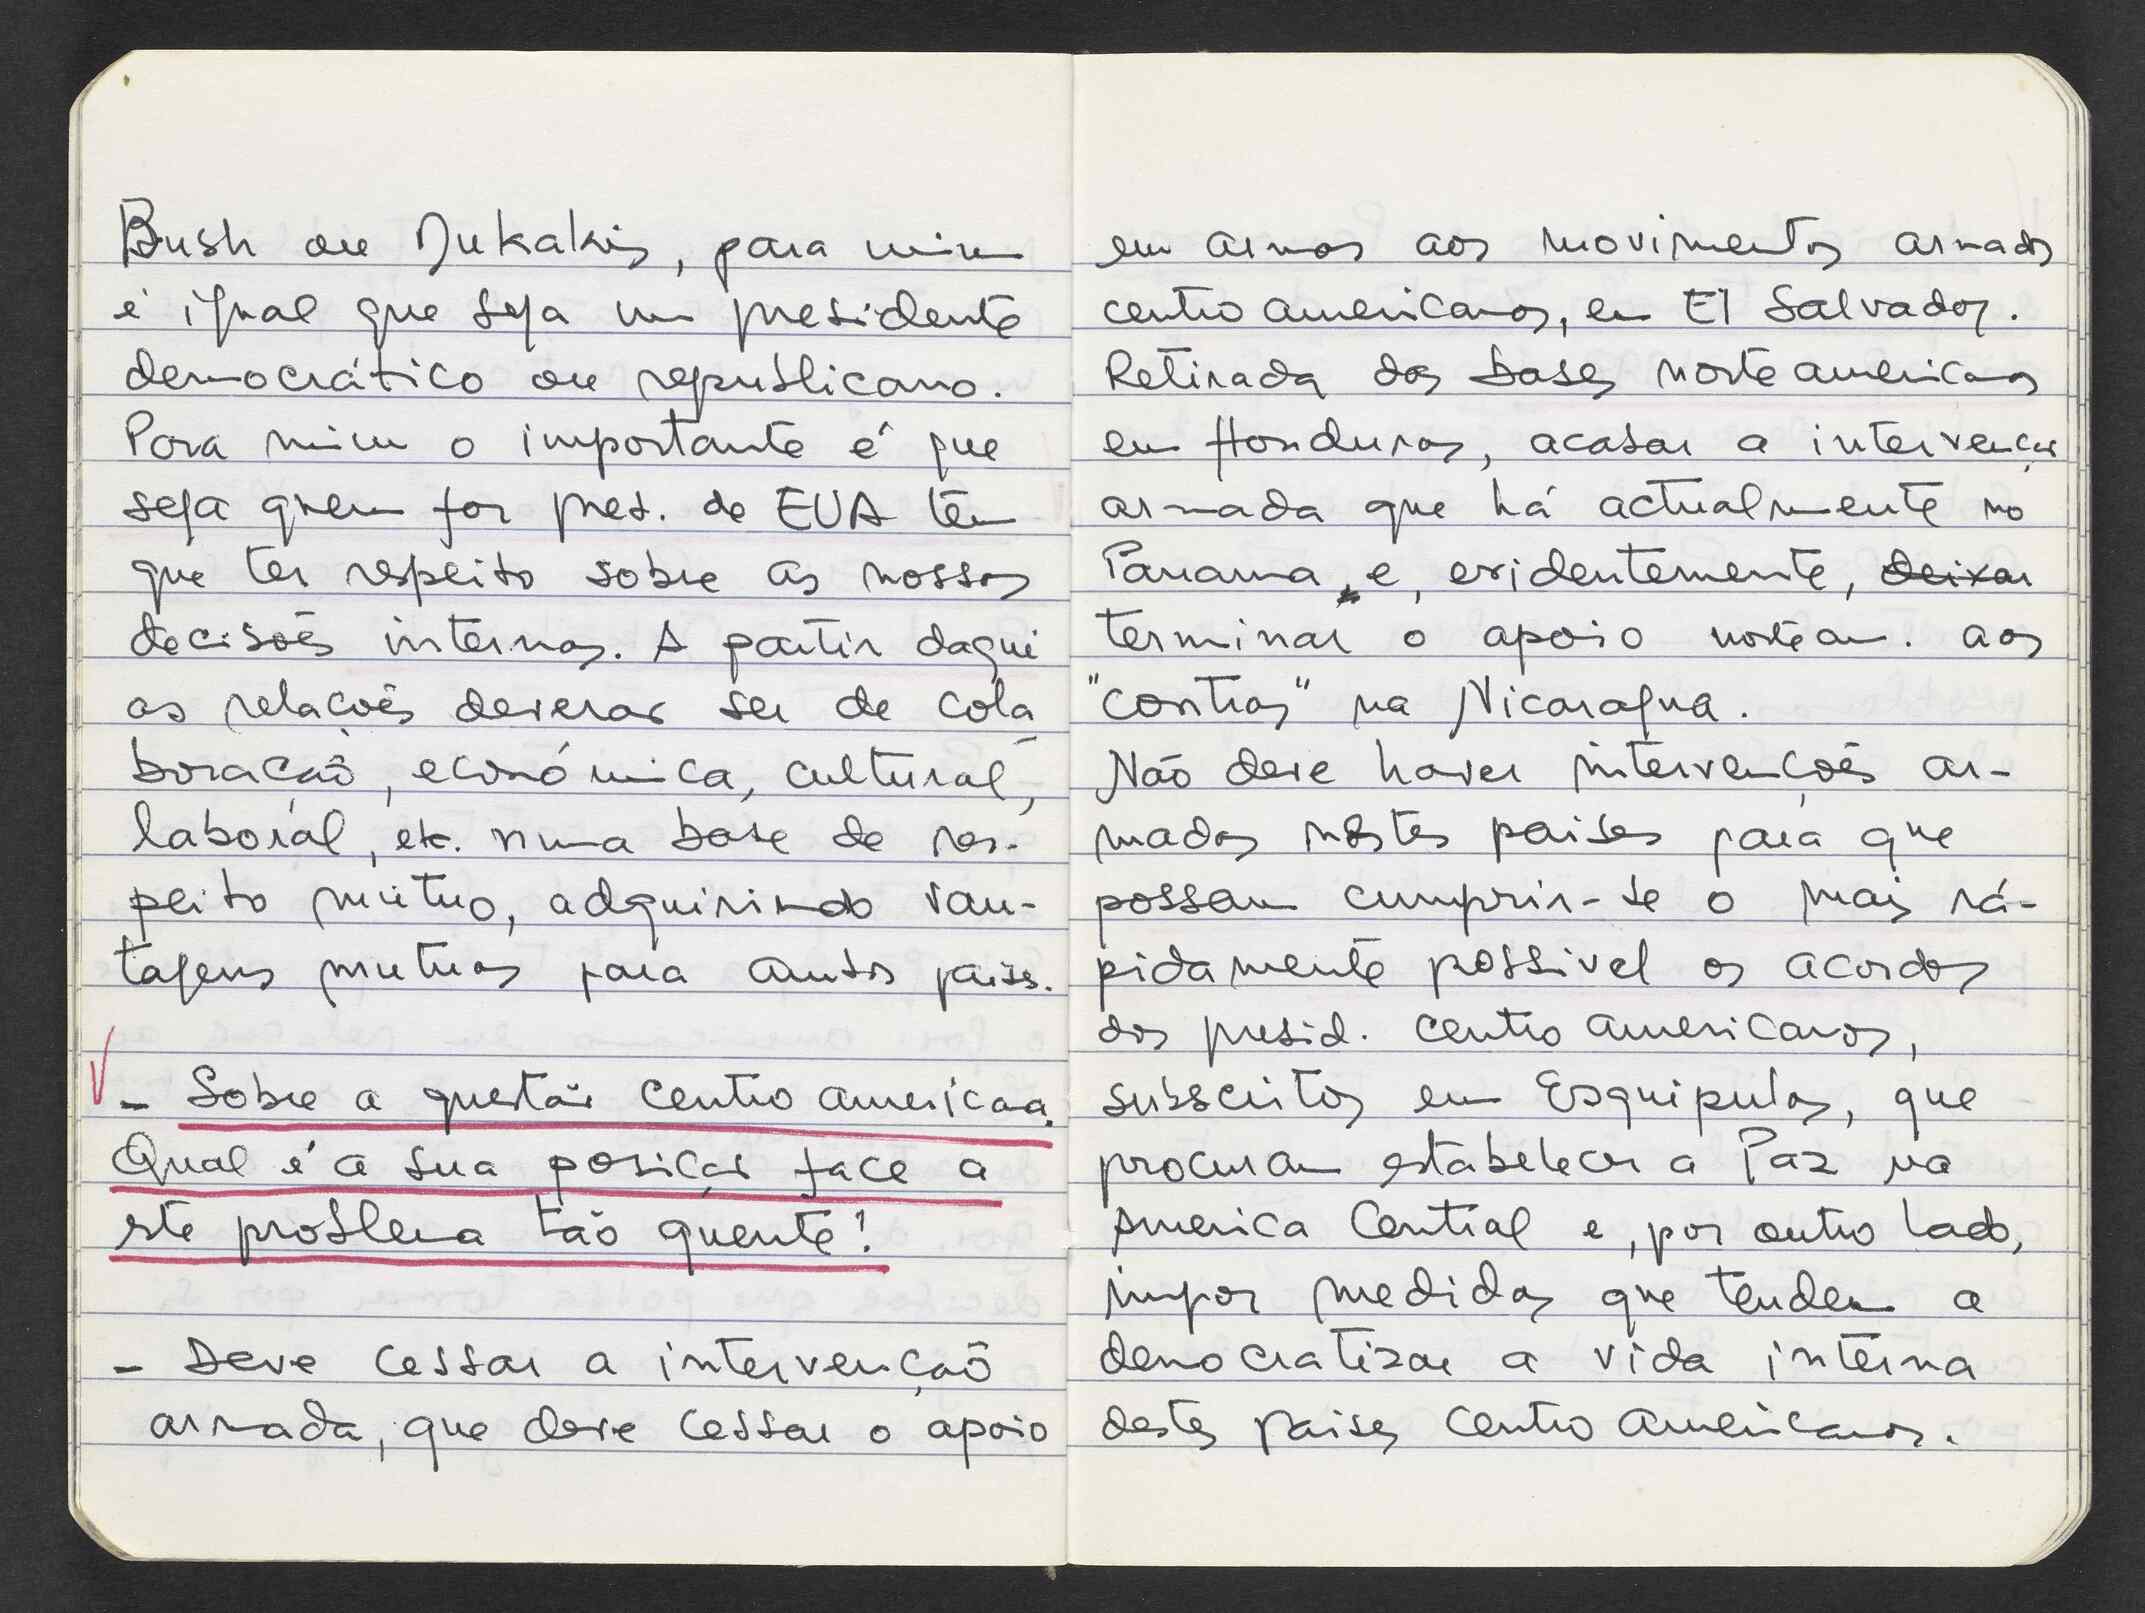 Bush ou Dukakis, para mim
é igual que seja um presidente
democrático ou republicano.
Para mim o importante é que
seja quem for pres. de EUA tem
que ter respeito sobre as nossas
decisões internas. A partir daqui
as relacões deverão ser de cola
boração, económica, cultural,
laboral, etc. numa base de res-
peito mútuo, adquirindo van-
tagens mutuas para ambos paises.
- Sobre a questão centro americana.
Qual é a sua posição face a
este problema tão quente?
- Deve cessar a intervenção
armada, que deve cessar o apoio
em armas aos movimentos armados
centro americanos, em El Salvador.
Retirada das bases norte americanas
em Honduras, acabar a intervenção
armada que há actualmente no
Panama, e, evidentemente, deixar
terminar o apoio norteam. aos
"contras" na Nicaragua.
Não deve haver intervenções ar-
madas nestes paises para que
possam cumprir-se o mais rá-
pidamente possivel os acordos
dos presid. centro americanos,
subscritos em Esquipulas, que
procuram estabelecer a Paz na
America Central e, por outro lado,
impor medidas que tendem a
democratizar a vida interna
destes paises centro americanos.